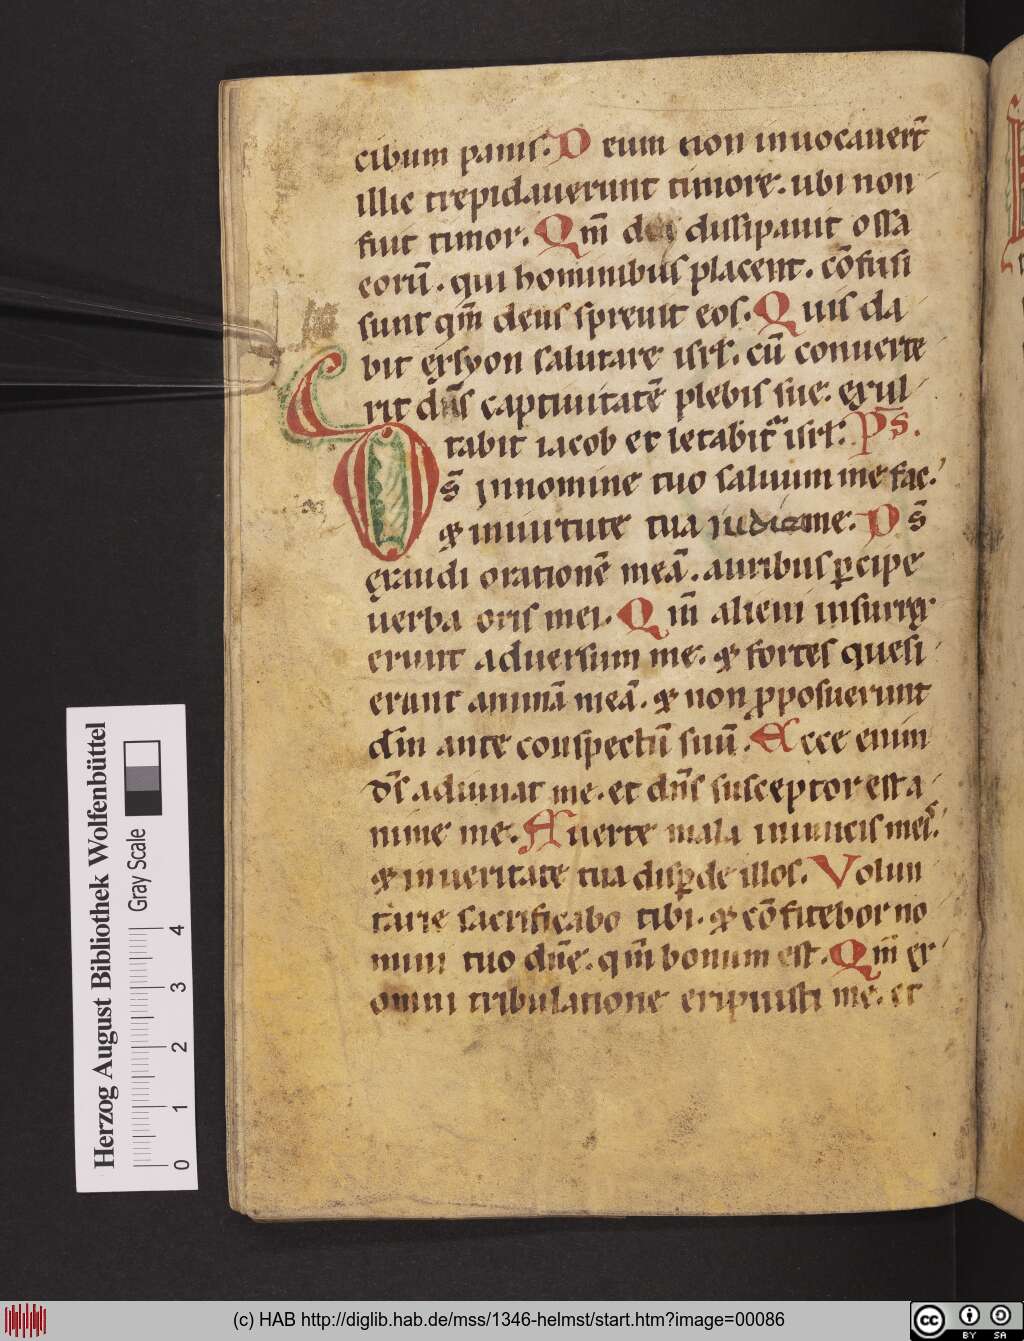 cibum panis. Deum non inuocauer̄t
illic trepidauerunt timore. ubi non
fuit timor. Qm̄ deus dissipauit ossa
eorū. qui hominibus placent. cōfusi
sunt qm̄ deus spreuit eos. Quis da
bit ex syon salutare isrl̄. cū conuerte
rit dn̄s captiuitatē plebis sue. exul
tabit iacob et letabit᷑ isrl̄. Ps̄.
Ds̄ in nomine tuo saluum me fac.
& in uirtute tua iudica me. Ds̄
exaudi orationē meā. auribus ꝑcipe
uerba oris mei. Qm̄ alieni insurrex
erunt aduersum me. & fortes quesi
erunt animā meā. & non ꝓposuerunt
dm̄ ante conspectū suū. Ecce enim
ds̄ adiuuat me. et dn̄s susceptor est a
nime me. Auerte mala inimicis meis.
& in ueritate tua disꝑde illos. Volun
tarie sacrificabo tibi. & cōfitebor no
mini tuo dn̄e. qm̄ bonum est. Qm̄ ex
omni tribulatione eripuisti me. et
Herzog August Bibliothek Wolfenbüttel
Gray Scale
0 1 2 3 4
(c) HAB http://diglib.hab.de/mss/1346-helmst/start.htm?image=00086
cc BY SA